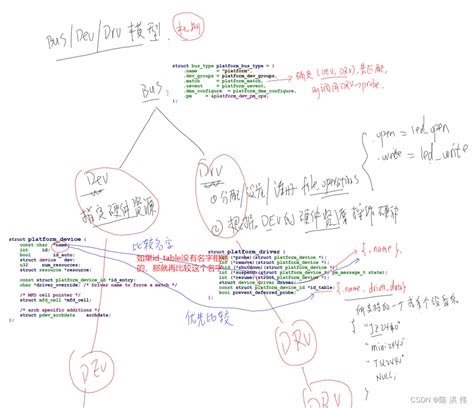 Bus/Dev/Drv 模型.
struct bus_type platform_bus_type = {
.name = "platform",
.dev_groups = platform_dev_groups,
.match = platform_match,
.uevent = platform_uevent,
.dma_configure = platform_dma_configure,
.pm = &platform_dev_pm_ops,
确定(DEV, DRV)是否匹配
调用DRV->probe.
Bus
.open = led_open
.write = led_write
Dev
指定硬件资源
Drv
①分配/设置/注册 file_operations
②根据 DEV的硬件资源 操作硬件
比较名字
如果id_table没有名字相同
的，那就再比较这个名字
struct platform_device {
const char *name;
int id;
bool id_auto;
struct device dev;
u32 num_resources;
struct resource *resource;
const struct platform_device_id *id_entry;
char *driver_override; /* Driver name to force a match */
/* MFD cell pointer */
struct mfd_cell *mfd_cell;
/* arch specific additions */
struct pdev_archdata archdata;
struct platform_driver {
int (*probe)(struct platform_device *);
int (*remove)(struct platform_device *);
void (*shutdown)(struct platform_device *);
int (*suspend)(struct platform_device *, pm_message_t state);
int (*resume)(struct platform_device *);
struct device_driver driver;
const struct platform_device_id *id_table;
bool prevent_deferred_probe;
{.name},
{.name, driver_data}
优先比较
所支持的一个或多个设备名
{"JZ2440"
"mini2440"
"TQ2440"
NULL;
}
DEV
DRV
DRV
CSDN @陈 洪 伟